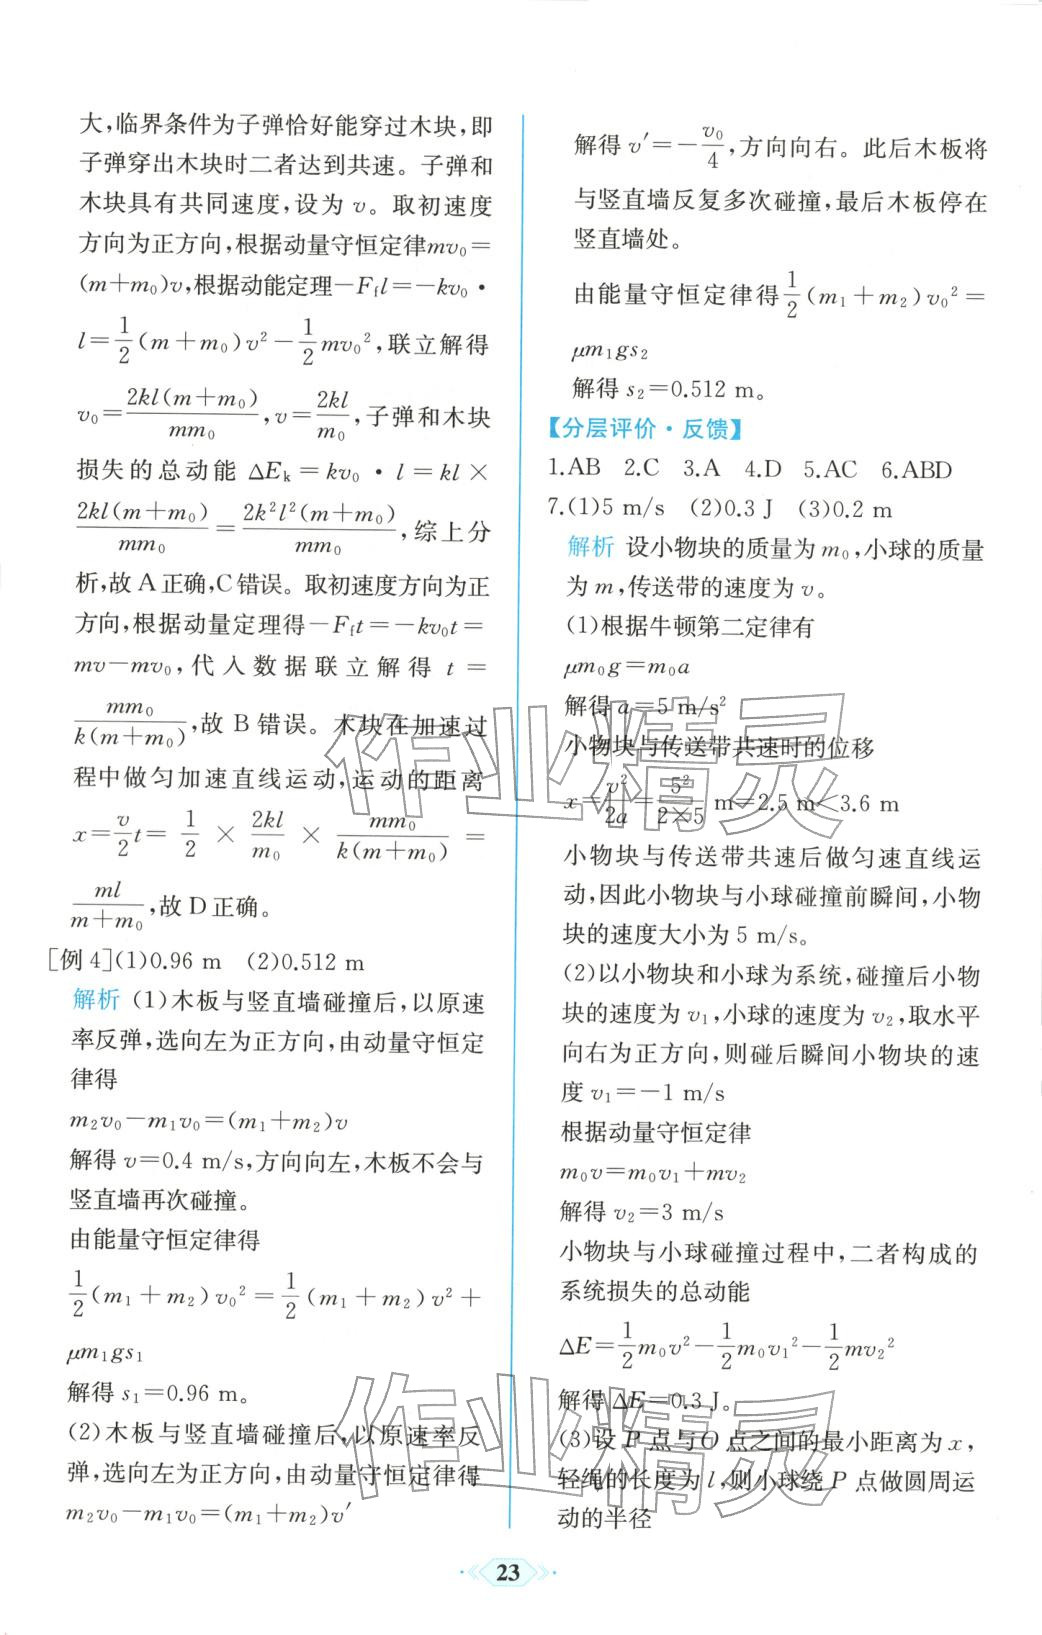 大,临界条件为子弹恰好能穿过木块,即
子弹穿出木块时二者达到共速。子弹和
木块具有共同速度,设为 v。取初速度
方向为正方向,根据动量守恒定律mv₀=
(m+m₀)v,根据动能定理-F_f l=-kv₀·
l=1/2(m+m₀)v²-1/2mv₀²,联立解得
v₀=2kl(m+m₀)/mm₀,v=2kl/m₀,子弹和木块
损失的总动能 ΔE_k=kv₀·l=kl×
2kl(m+m₀)/mm₀=2k²l²(m+m₀)/mm₀,综上分
析,故 A 正确,C 错误。取初速度方向为正
方向,根据动量定理得-F_f t=-kv₀t=
mv-mv₀,代入数据联立解得 t=
mm₀/k(m+m₀),故 B 错误。木块在加速过
程中做匀加速直线运动,运动的距离
x=v/2t=1/2×2kl/m₀×mm₀/k(m+m₀)=
ml/m+m₀,故 D 正确。
[例 4](1)0.96 m (2)0.512 m
解析 (1)木板与竖直墙碰撞后,以原速
率反弹,选向左为正方向,由动量守恒定
律得
m₂v₀-m₁v₀=(m₁+m₂)v
解得 v=0.4 m/s,方向向左,木板不会与
竖直墙再次碰撞。
由能量守恒定律得
1/2(m₁+m₂)v₀²=1/2(m₁+m₂)v²+
μm₁gs₁
解得 s₁=0.96 m。
(2)木板与竖直墙碰撞后,以原速率反
弹,选向左为正方向,由动量守恒定律得
m₂v₀-m₁v₀=(m₁+m₂)v′
解得 v′=-v₀/4,方向向右。此后木板将
与竖直墙反复多次碰撞,最后木板停在
竖直墙处。
由能量守恒定律得1/2(m₁+m₂)v₀²=
μm₁gs₂
解得 s₂=0.512 m。
【分层评价·反馈】
1.AB 2.C 3.A 4.D 5.AC 6.ABD
7.(1)5 m/s (2)0.3 J (3)0.2 m
解析 设小物块的质量为 m₀,小球的质量
为 m,传送带的速度为 v。
(1)根据牛顿第二定律有
μm₀g=m₀a
解得 a=5 m/s²
小物块与传送带共速时的位移
x=v²/2a=5²/2×5 m=2.5 m<3.6 m
小物块与传送带共速后做匀速直线运
动,因此小物块与小球碰撞前瞬间,小物
块的速度大小为 5 m/s。
(2)以小物块和小球为系统,碰撞后小物
块的速度为 v₁,小球的速度为 v₂,取水平
向右为正方向,则碰后瞬间小物块的速
度 v₁=-1 m/s
根据动量守恒定律
m₀v=m₀v₁+mv₂
解得 v₂=3 m/s
小物块与小球碰撞过程中,二者构成的
系统损失的总动能
ΔE=1/2m₀v²-1/2m₀v₁²-1/2mv₂²
解得 ΔE=0.3 J。
(3)设 P 点与 O 点之间的最小距离为 x,
轻绳的长度为 l,则小球绕 P 点做圆周运
动的半径
作业精灵
作业精灵
23